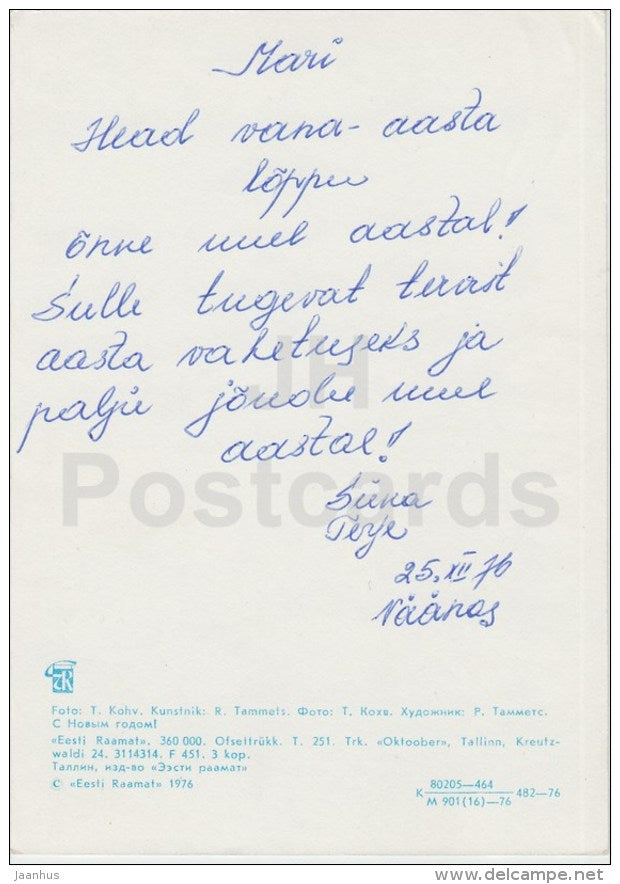 Mari
Head vana-aasta
lõppu
õnne uuel aastal!
Sulle tugevat tervist
aasta vahetuseks ja
palju jõudu uuel
aastal!
Sinna
Terje
25. XII 76
Väänas
JH
Postcards
Foto: T. Kohv. Kunstnik: R. Tammets. Фото: Т. Кохв. Художник: Р. Тамметс.
С Новым годом!
«Eesti Raamat». 360 000. Ofsettrükk. T. 251. Trk. «Oktoober», Tallinn, Kreutz-
waldi 24. 3114314. F 451. 3 kop.
Таллин, изд-во «Ээсти раамат»
© «Eesti Raamat» 1976
К 80205—464 482—76
М 901(16)—76
jaanhus
www.delcampe.net